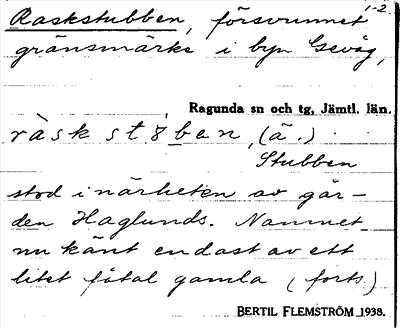 1-2.
Raskstubben, försvunnet
gränsmärke i byn Gevåg,
Ragunda sn och tg, Jämtl. län.
ràskstɞ̀ben, (ä.)
Stubben
stod i närheten av går-
den Haglunds. Namnet
nu känt endast av ett
litet fåtal gamla (forts.)
BERTIL FLEMSTRÖM 1938.